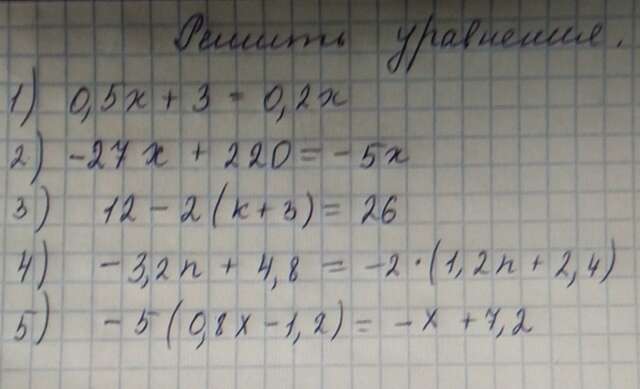 Решить уравнения.
1) 0,5x + 3 = 0,2x
2) -27x + 220 = -5x
3) 12 - 2(k+3) = 26
4) -3,2n + 4,8 = -2·(1,2n + 2,4)
5) -5(0,8x - 1,2) = -x + 7,2